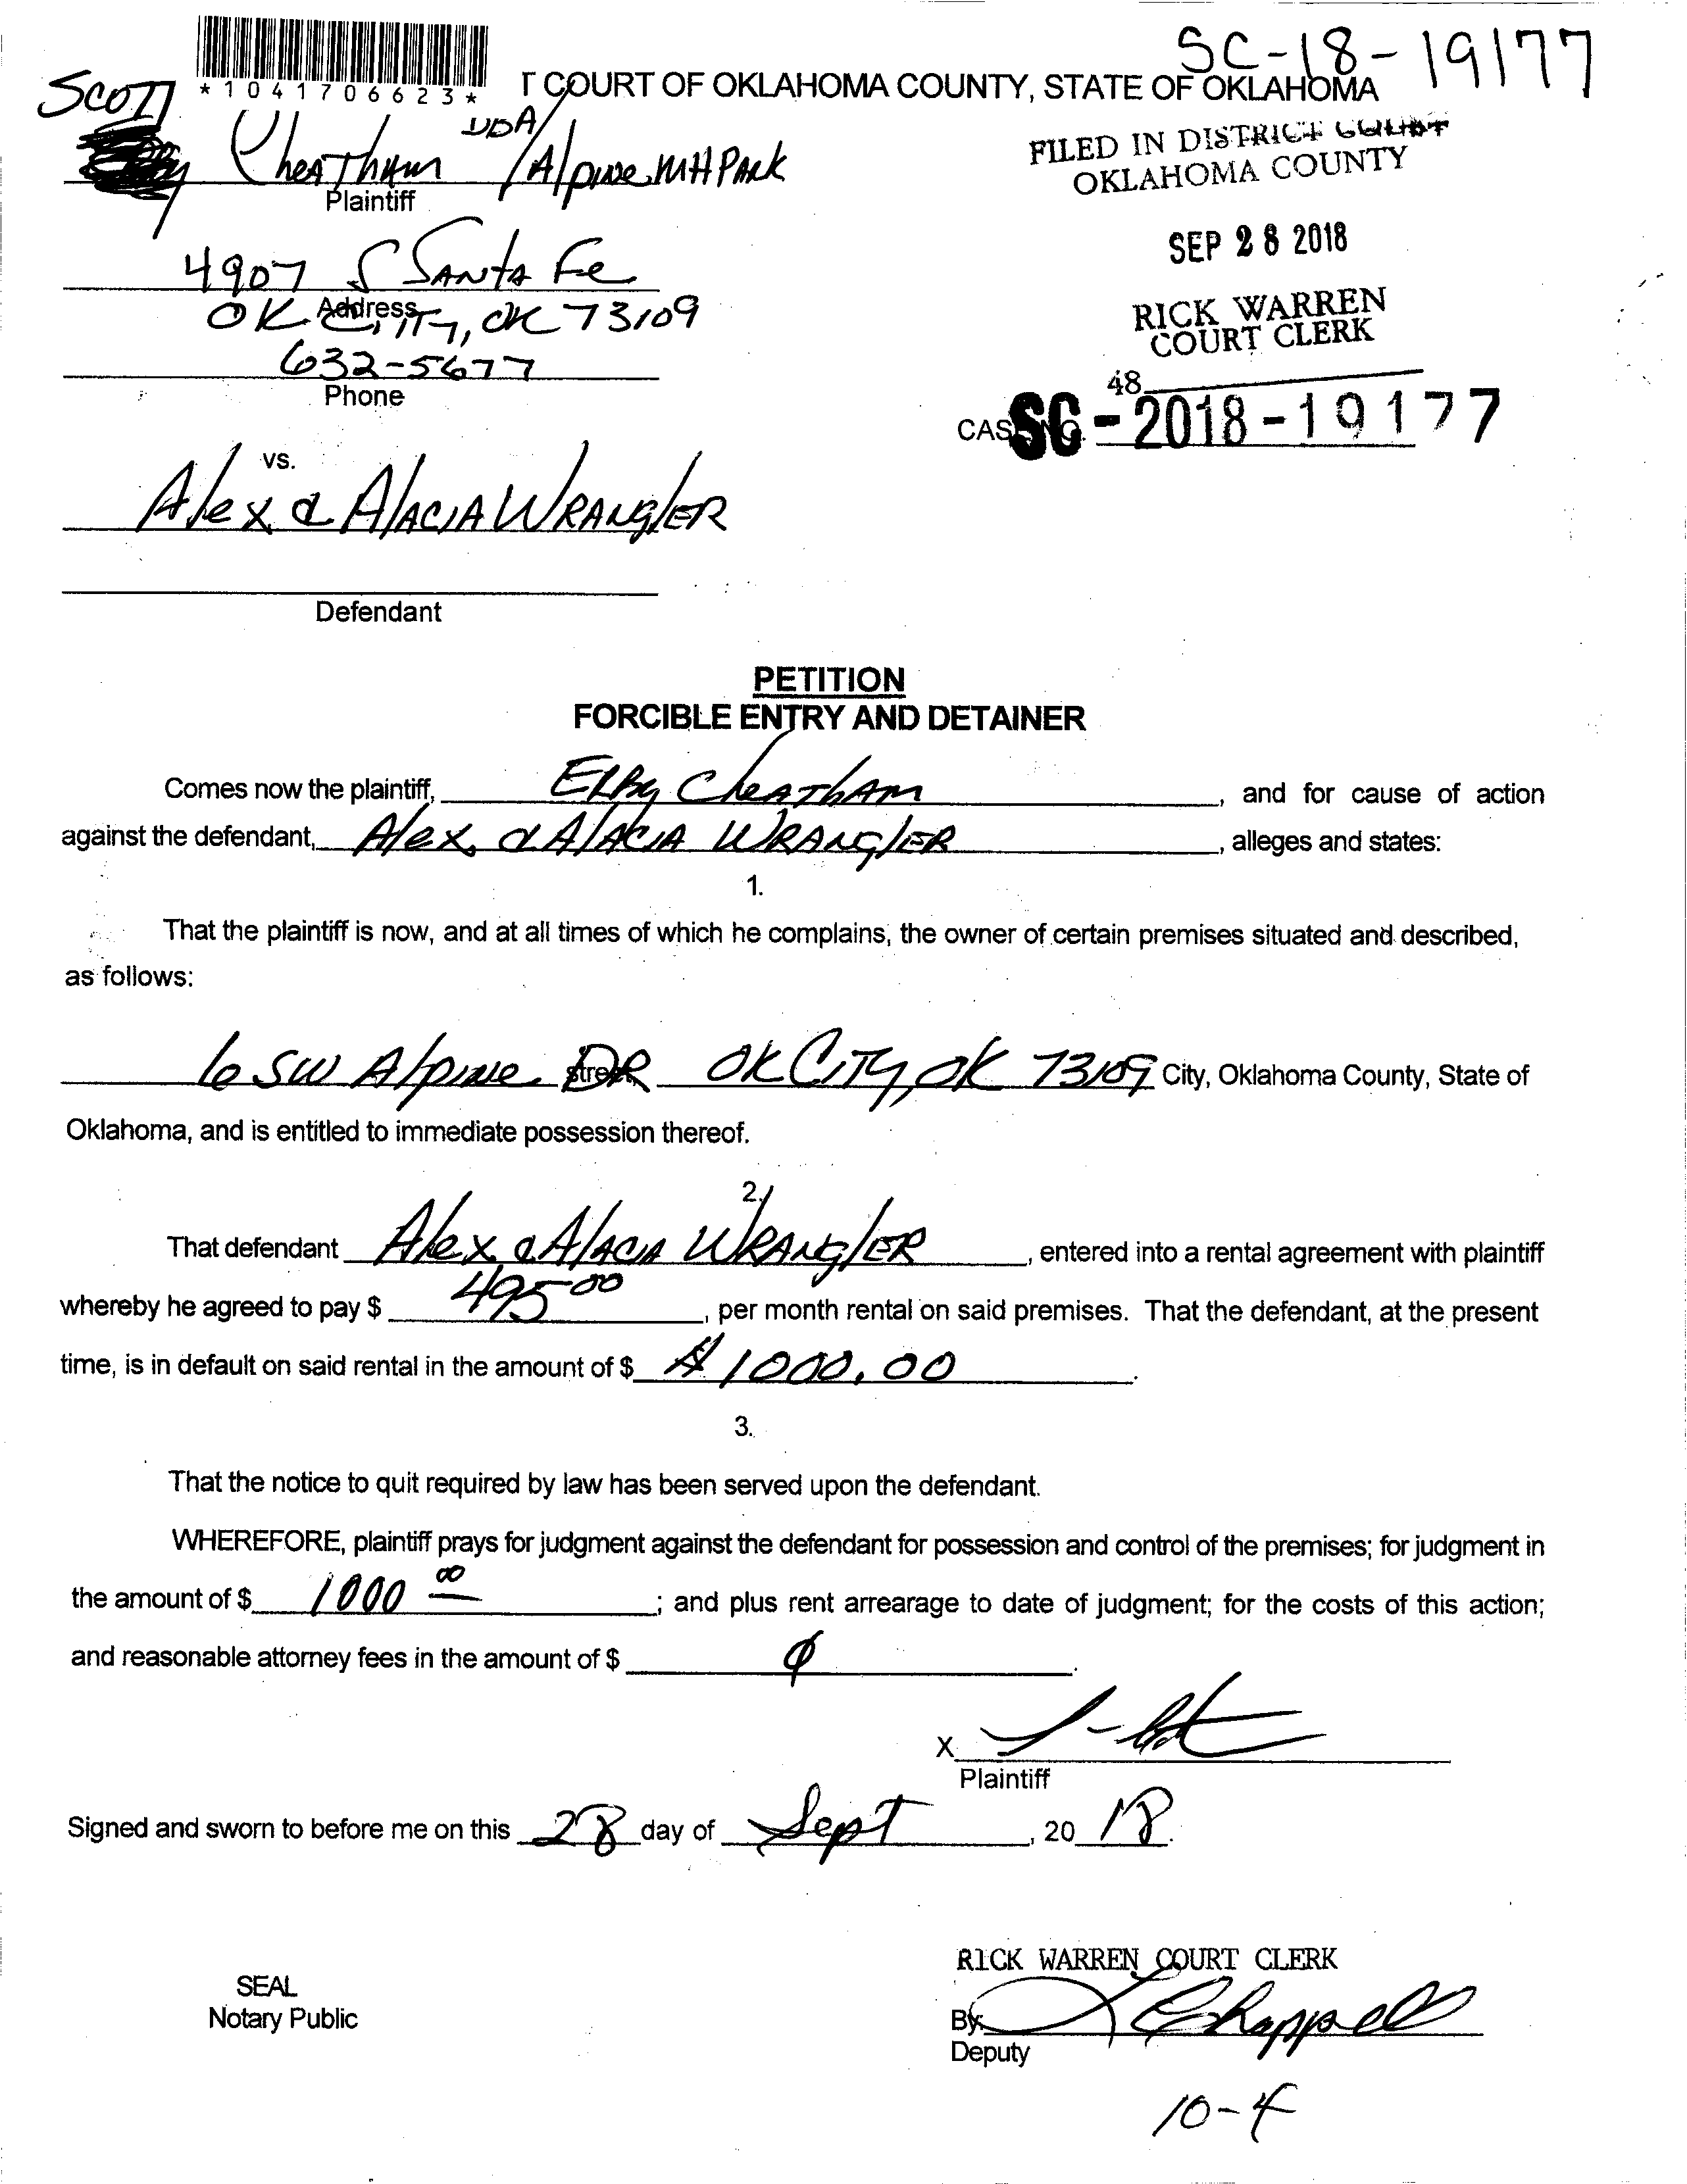 SC-18-19177
*1041706623*
T COURT OF OKLAHOMA COUNTY, STATE OF OKLAHOMA
SCOTT
Cheatham DBA/Alpine MH Park
Plaintiff
FILED IN DISTRICT COURT
OKLAHOMA COUNTY
SEP 28 2018
RICK WARREN
COURT CLERK
48
4907 S Santa Fe
Address
OK City, OK 73109
632-5677
Phone
CASE NO. SC-2018-19177
vs.
Alex & Alacia Wrangler
Defendant
PETITION
FORCIBLE ENTRY AND DETAINER
Comes now the plaintiff, Elby Cheatham, and for cause of action
against the defendant, Alex & Alacia Wrangler, alleges and states:
1.
That the plaintiff is now, and at all times of which he complains, the owner of certain premises situated and described,
as follows:
6 SW Alpine DR OK City, OK 73109 City, Oklahoma County, State of
Oklahoma, and is entitled to immediate possession thereof.
2.
That defendant Alex & Alacia Wrangler, entered into a rental agreement with plaintiff
whereby he agreed to pay $ 495 00, per month rental on said premises. That the defendant, at the present
time, is in default on said rental in the amount of $ $1000.00.
3.
That the notice to quit required by law has been served upon the defendant.
WHEREFORE, plaintiff prays for judgment against the defendant for possession and control of the premises; for judgment in
the amount of $ 1000 00; and plus rent arrearage to date of judgment; for the costs of this action;
and reasonable attorney fees in the amount of $ 0.
X
Plaintiff
Signed and sworn to before me on this 28 day of Sept, 20 18.
RICK WARREN COURT CLERK
SEAL
Notary Public
By: Chappell
Deputy
10-4